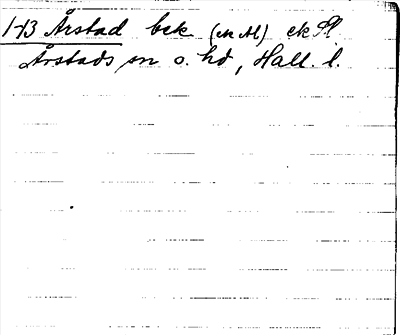 1-13 Årstad bsk (en Al) ek Pl.
Årstads sn o. hd, Hall. l.